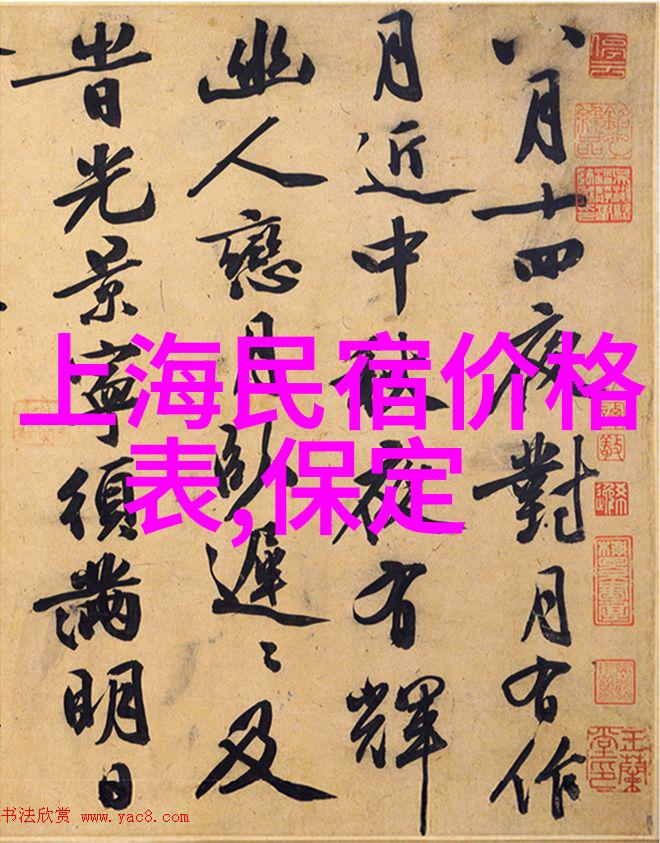 八月十四夜對月有作
月近中秋夜有輝
幽人戀月臥遲〻及
旹光景寧須滿明日
上海民宿价格
表,保定
书法欣赏 www.yac8.com